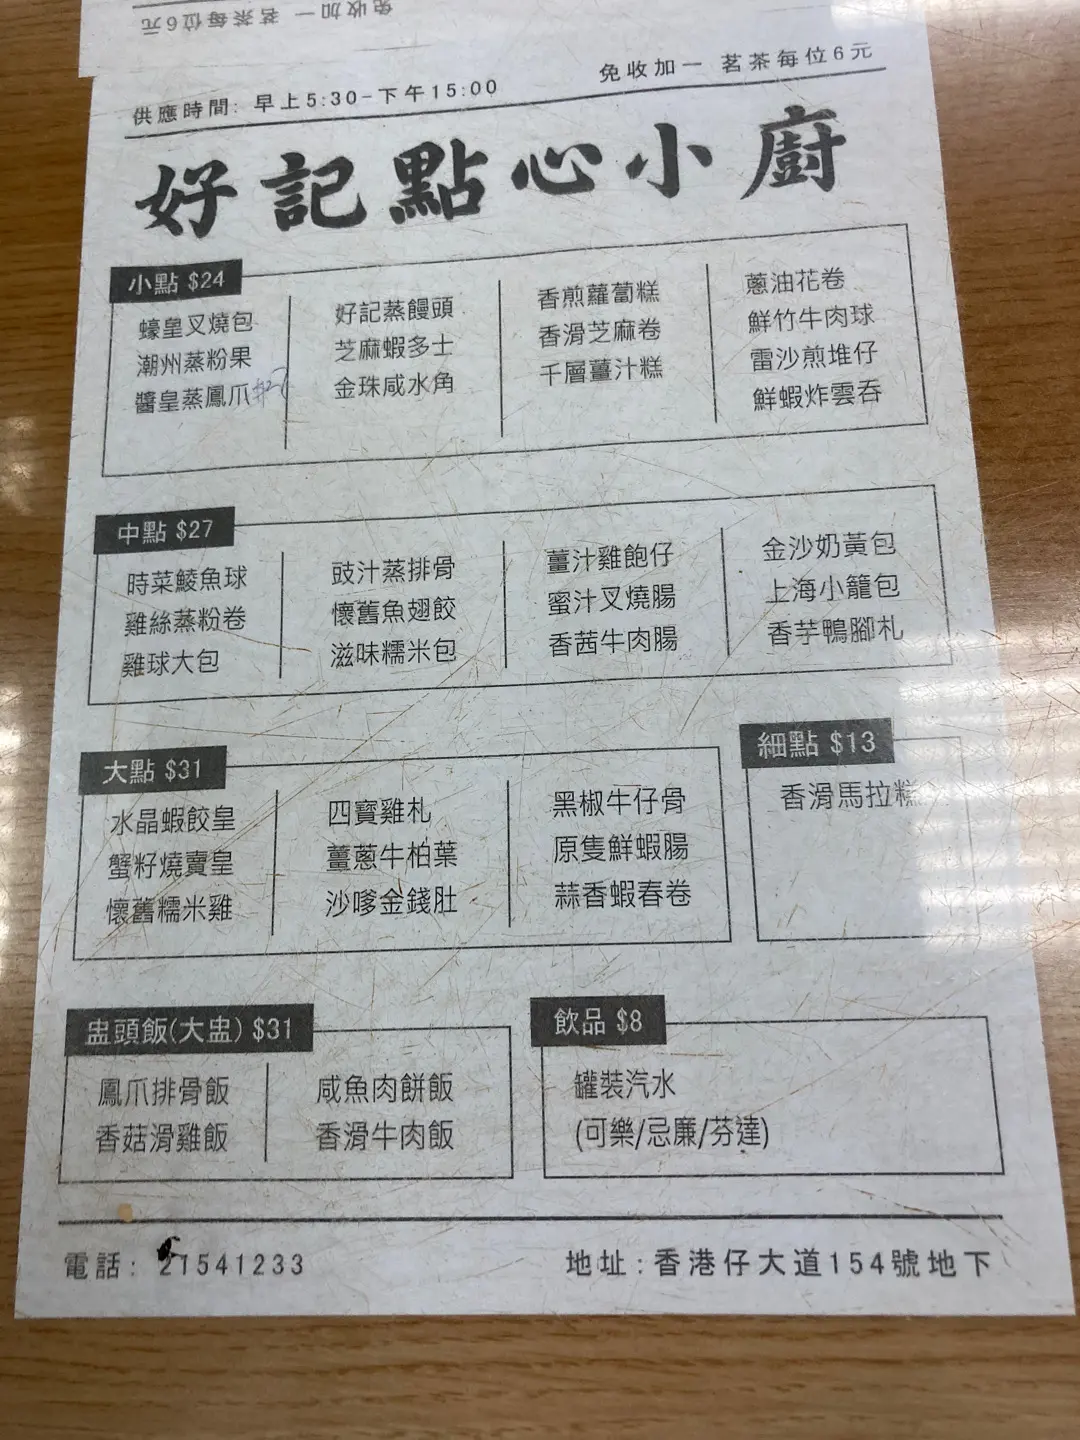 免收加一 茗茶每位6元
供應時間: 早上5:30-下午15:00
免收加一 茗茶每位6元
好記點心小廚
小點 $24
蠔皇叉燒包
潮州蒸粉果
醬皇蒸鳳爪
好記蒸饅頭
芝麻蝦多士
金珠咸水角
香煎蘿蔔糕
香滑芝麻卷
千層薑汁糕
蔥油花卷
鮮竹牛肉球
雷沙煎堆仔
鮮蝦炸雲吞
中點 $27
時菜鯪魚球
雞絲蒸粉卷
雞球大包
豉汁蒸排骨
懷舊魚翅餃
滋味糯米包
薑汁雞飽仔
蜜汁叉燒腸
香茜牛肉腸
金沙奶黃包
上海小籠包
香芋鴨腳札
大點 $31
水晶蝦餃皇
蟹籽燒賣皇
懷舊糯米雞
四寶雞札
薑蔥牛柏葉
沙嗲金錢肚
黑椒牛仔骨
原隻鮮蝦腸
蒜香蝦春卷
細點 $13
香滑馬拉糕
盅頭飯(大盅) $31
鳳爪排骨飯
香菇滑雞飯
咸魚肉餅飯
香滑牛肉飯
飲品 $8
罐裝汽水
(可樂/忌廉/芬達)
電話: 21541233
地址:香港仔大道154號地下